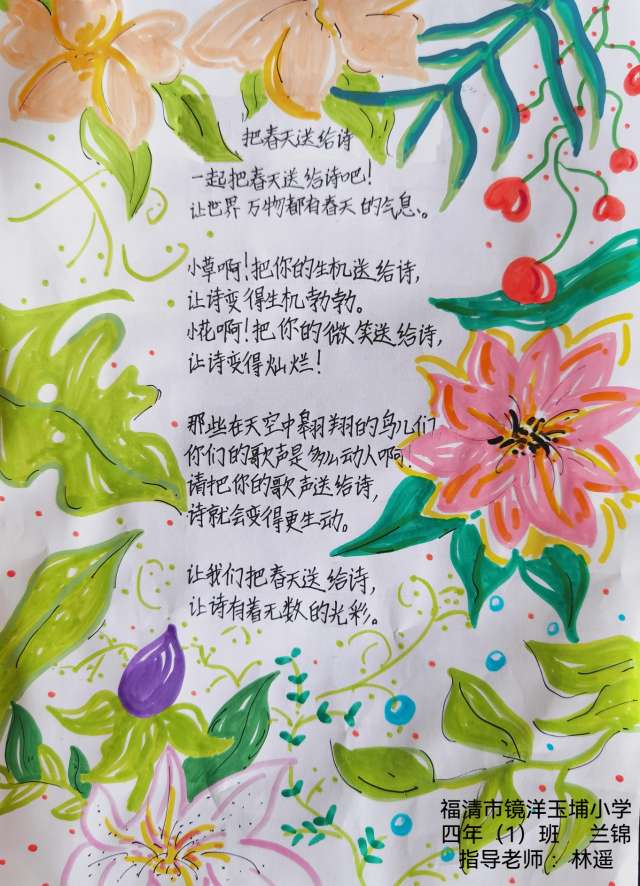 把春天送给诗
一起把春天送给诗吧！
让世界万物都有春天的气息、。
小草啊！把你的生机送给诗，
让诗变得生机勃勃。
小花啊！把你的微笑送给诗，
让诗变得灿烂！
那些在天空中翱翔的鸟儿们
你们的歌声是多么动人啊！
请把你的歌声送给诗，
诗就会变得更生动。
让我们把春天送给诗，
让诗有着无数的光彩。
福清市镜洋玉埔小学
四年（1）班 兰锦
指导老师：林遥